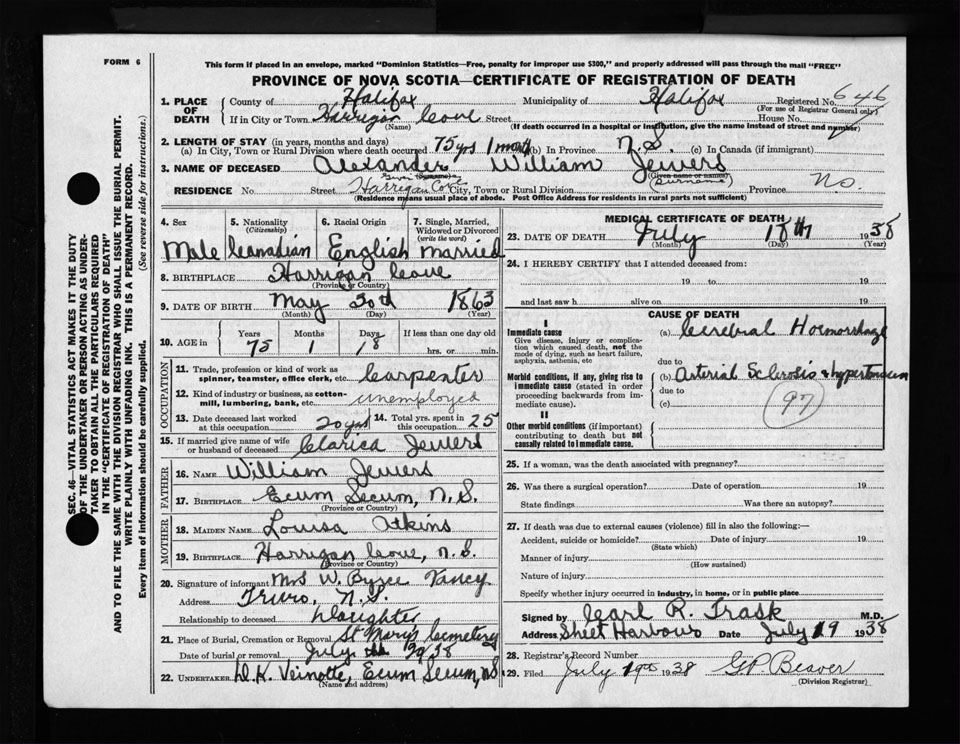 FORM 6
This form if placed in an envelope, marked "Dominion Statistics—Free, penalty for improper use $300," and properly addressed will pass through the mail "FREE"
PROVINCE OF NOVA SCOTIA—CERTIFICATE OF REGISTRATION OF DEATH
1. PLACE OF DEATH
County of Halifax Municipality of Halifax Registered No. 646
(For use of Registrar General only)
If in City or Town Harrigan Cove Street House No.
(Name) (If death occurred in a hospital or institution, give the name instead of street and number)
2. LENGTH OF STAY (in years, months and days)
(a) In City, Town or Rural Division where death occurred 75 yrs 1 month (b) In Province N.S. (c) In Canada (if immigrant)
3. NAME OF DECEASED Alexander William Jewers
(Surname) (Given name or names)
Given Surname
RESIDENCE No. Street Harrigan Cove City, Town or Rural Division Province N.S.
(Residence means usual place of abode. Post Office Address for residents in rural parts not sufficient)
4. Sex 5. Nationality (Citizenship) 6. Racial Origin 7. Single, Married, Widowed or Divorced (write the word)
Male Canadian English Married
8. BIRTHPLACE Harrigan Cove
(Province or Country)
9. DATE OF BIRTH May 30th 1863
(Month) (Day) (Year)
10. AGE in Years Months Days If less than one day old
75 1 18 hrs. or min.
OCCUPATION
11. Trade, profession or kind of work as spinner, teamster, office clerk, etc. Carpenter
12. Kind of industry or business, as cotton-mill, lumbering, bank, etc. unemployed
13. Date deceased last worked at this occupation 20 yrs 14. Total yrs. spent in this occupation 25
15. If married give name of wife or husband of deceased Clarica Jewers
FATHER
16. NAME William Jewers
17. BIRTHPLACE Ecum Secum, N.S.
(Province or Country)
MOTHER
18. MAIDEN NAME Louisa Atkins
19. BIRTHPLACE Harrigan Cove, N.S.
(Province or Country)
20. Signature of informant Mrs W. Byzee Yancy
Address Truro, N.S.
Relationship to deceased Daughter
21. Place of Burial, Cremation or Removal St Marys Cemetery
Date of burial or removal July 20 1938
22. UNDERTAKER D.K. Veinotte, Ecum Secum, N.S.
(Name and address)
MEDICAL CERTIFICATE OF DEATH
23. DATE OF DEATH July 18th 1938
(Month) (Day) (Year)
24. I HEREBY CERTIFY that I attended deceased from:
19 to 19
and last saw h alive on 19
CAUSE OF DEATH
I
Immediate cause
Give disease, injury or complication which caused death, not the mode of dying, such as heart failure, asphyxia, asthenia, etc
(a) Cerebral Hoemorrhage
due to
Morbid conditions, if any, giving rise to immediate cause (stated in order proceeding backwards from immediate cause).
(b) Arterial Sclerosis & hypertension
due to
(c)
97
II
Other morbid conditions (if important) contributing to death but not causally related to immediate cause.
25. If a woman, was the death associated with pregnancy?
26. Was there a surgical operation? Date of operation 19
State findings Was there an autopsy?
27. If death was due to external causes (violence) fill in also the following:—
Accident, suicide or homicide? Date of injury 19
(State which)
Manner of injury
(How sustained)
Nature of injury
Specify whether injury occurred in industry, in home, or in public place
Signed by Carl R. Trask M.D.
Address Sheet Harbour Date July 19 1938
28. Registrar's Record Number
29. Filed July 19th 1938 G.P. Beaver
(Division Registrar)
SEC. 46—VITAL STATISTICS ACT MAKES IT THE DUTY
OF THE UNDERTAKER OR PERSON ACTING AS UNDER-
TAKER TO OBTAIN ALL THE PARTICULARS REQUIRED
IN THE "CERTIFICATE OF REGISTRATION OF DEATH"
AND TO FILE THE SAME WITH THE DIVISION REGISTRAR WHO SHALL ISSUE THE BURIAL PERMIT.
WRITE PLAINLY WITH UNFADING INK. THIS IS A PERMANENT RECORD.
Every item of information should be carefully supplied. (See reverse side for instructions.)